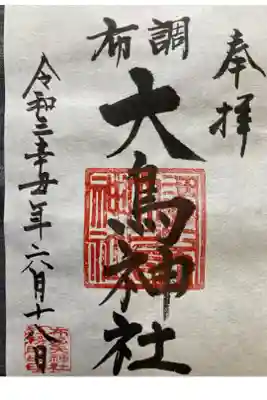 奉拝
調布
大鳥神社
令和三辛丑年六月十八日